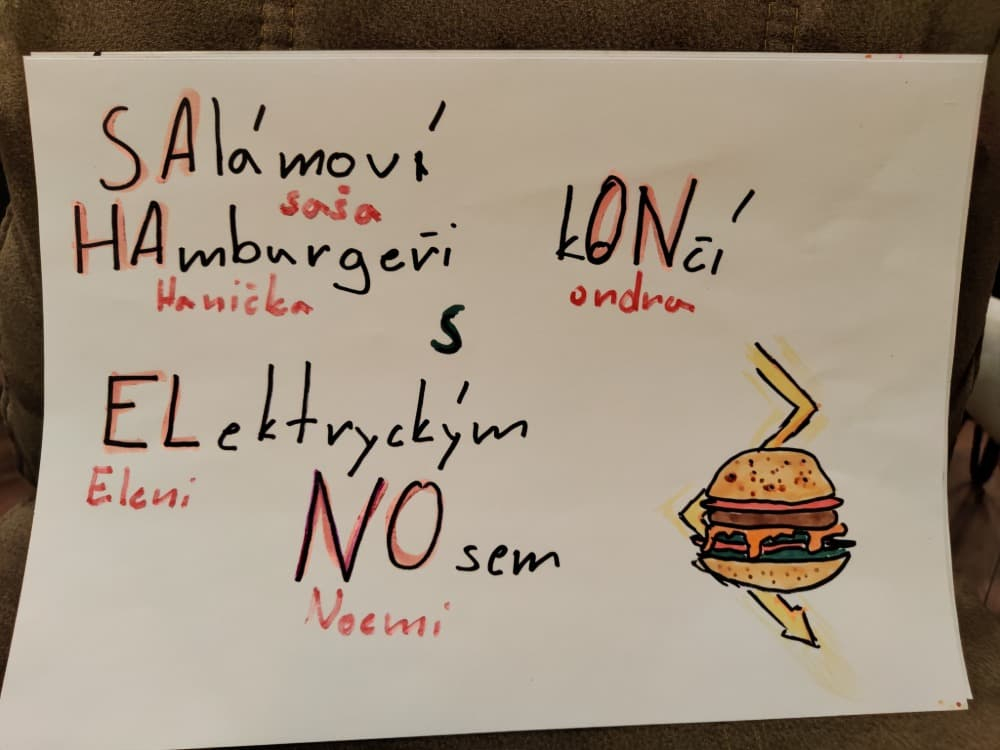 SAlámoví
saša
HAmburgeři kONčí
Hanička ondra
s
ELektryckým
Eleni
NOsem
Noemi